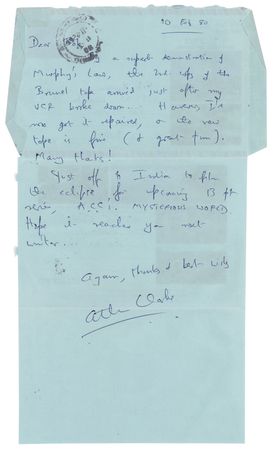 10 Feb 80
Dear
a superb demonstration of
Murphy's Law, the 2nd copy of the
tape arrived just after my
VCR broke down... However, I've
now got it repaired, so the new
tape is fine (& great fun).
Many thanks!
Just off to India to film
the eclipse for upcoming 13 pt
series, A.C.C's MYSTERIOUS WORLD.
Hope it reaches you next
winter...
Again, thanks & best wishes